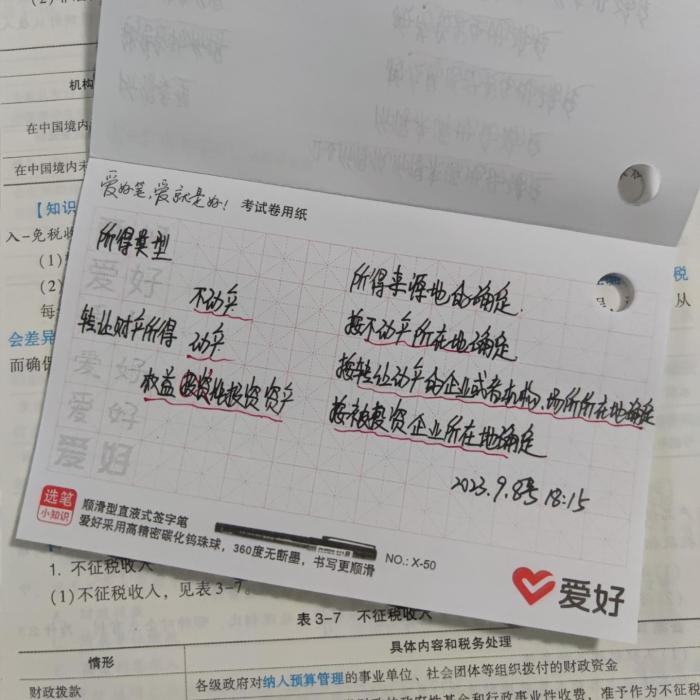 机构
在中国境内
在中国境内未
【知识
入-免税收
(1)
(2)
每
会差异
而确保
税
从
爱好笔,爱就是好! 考试卷用纸
所得类型 所得来源地的确定
不动产 按不动产所在地确定
转让财产所得 动产 按转让动产的企业或者机构、场所所在地确定
权益性投资资产 按被投资企业所在地确定
2023.9.8号 18:15
爱好
爱好
爱好
爱好
选笔
小知识
顺滑型直液式签字笔
爱好采用高精密碳化钨珠球,360度无断墨,书写更顺滑
NO.: X-50
爱好
1. 不征税收入
(1)不征税收入,见表3-7。
表3-7 不征税收入
情形 具体内容和税务处理
财政拨款 各级政府对纳入预算管理的事业单位、社会团体等组织拨付的财政资金
准予作为不征税